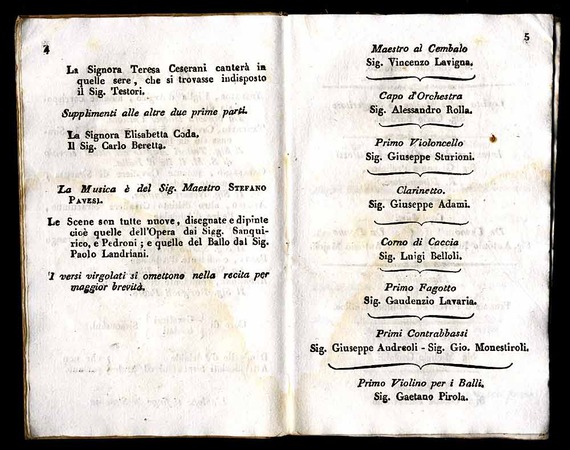 4
La Signora Teresa Ceserani canterà in
quelle sere, che si trovasse indisposto
il Sig. Testori.
Supplimenti alle altre due prime parti.
La Signora Elisabetta Coda.
Il Sig. Carlo Beretta.
La Musica è del Sig. Maestro STEFANO
PAVESI.
Le Scene son tutte nuove, disegnate e dipinte
cioè quelle dell'Opera dai Sigg. Sanqui-
rico, e Pedroni; e quelle del Ballo dal Sig.
Paolo Landriani.
I versi virgolati si omettono nella recita per
maggior brevità.
5
Maestro al Cembalo
Sig. Vincenzo Lavigna.
Capo d'Orchestra
Sig. Alessandro Rolla.
Primo Violoncello
Sig. Giuseppe Sturioni.
Clarinetto.
Sig. Giuseppe Adami.
Corno di Caccia
Sig. Luigi Belloli.
Primo Fagotto
Sig. Gaudenzio Lavaria.
Primi Contrabbassi
Sig. Giuseppe Andreoli - Sig. Gio. Monestiroli.
Primo Violino per i Balli,
Sig. Gaetano Pirola.